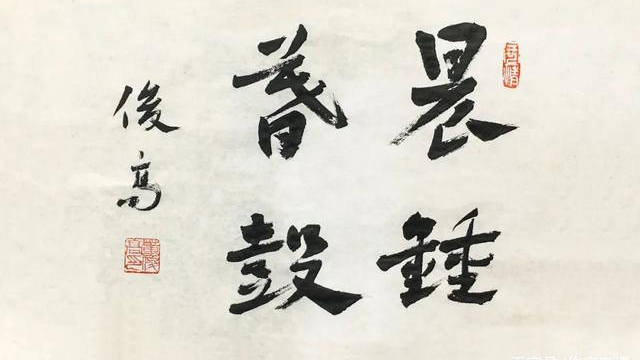 晨鍾
暮鼓
俊高